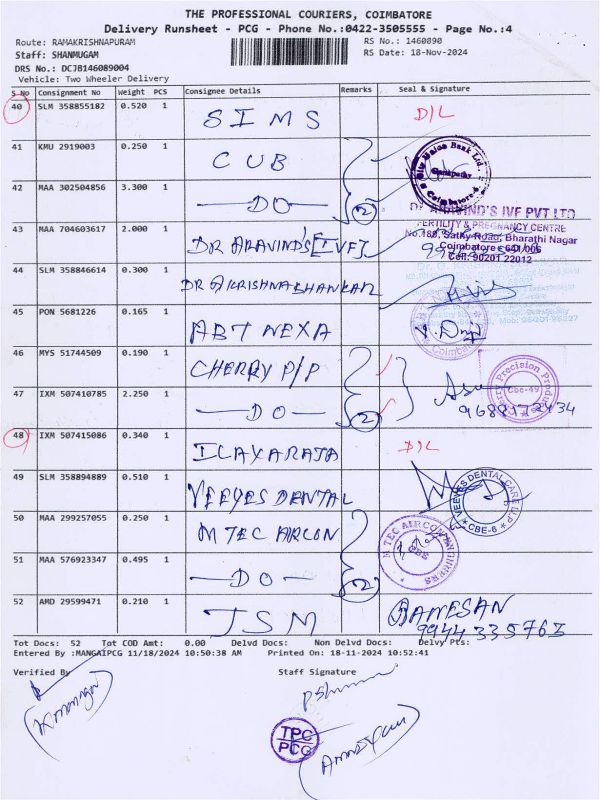 THE PROFESSIONAL COURIERS, COIMBATORE
Delivery Runsheet - PCG - Phone No.:0422-3505555 - Page No.:4
Route: RAMAKRISHNAPURAM RS No.: 1460890
Staff: SHANMUGAM RS Date: 18-Nov-2024
DRS No.: DCJB146089004
Vehicle: Two Wheeler Delivery
S No Consignment No Weight PCS Consignee Details Remarks Seal & Signature
40 SLM 358855182 0.520 1 SIMS D/L
41 KMU 2919003 0.250 1 CUB
42 MAA 302504856 3.300 1 —DO— 2
Coimbatore-6
DR ARAVIND'S IVF PVT LTD
FERTILITY & PREGNANCY CENTRE
43 MAA 704603617 2.000 1 DR ARAVINDS [IVF]
No.188, Sathy Road, Bharathi Nagar
Coimbatore - 641 006
Cell: 90201 22012
44 SLM 358846614 0.300 1
45 PON 5681226 0.165 1 ABT NEXA
46 MYS 51744509 0.190 1 CHERRY P/P
Cherry Precision Products
Cbe-49
47 IXM 507410785 2.250 1 —DO— 2
48 IXM 507415086 0.340 1 ILAYARAJA D/L
49 SLM 358894889 0.510 1 VEEYES DENTAL
VEEYES DENTAL CARE
CBE-6
50 MAA 299257055 0.250 1 M TEC AIRCON
M TEC AIRCON ENGINEERS
CBE
51 MAA 576923347 0.495 1 —DO— 2
52 AMD 29599471 0.210 1 JSM RAMESAN
Tot Docs: 52 Tot COD Amt: 0.00 Delvd Docs: Non Delvd Docs: Delvy Pts:
Entered By :MANGAIPCG 11/18/2024 10:50:38 AM Printed On: 18-11-2024 10:52:41
Verified By Staff Signature
TPC
PCG